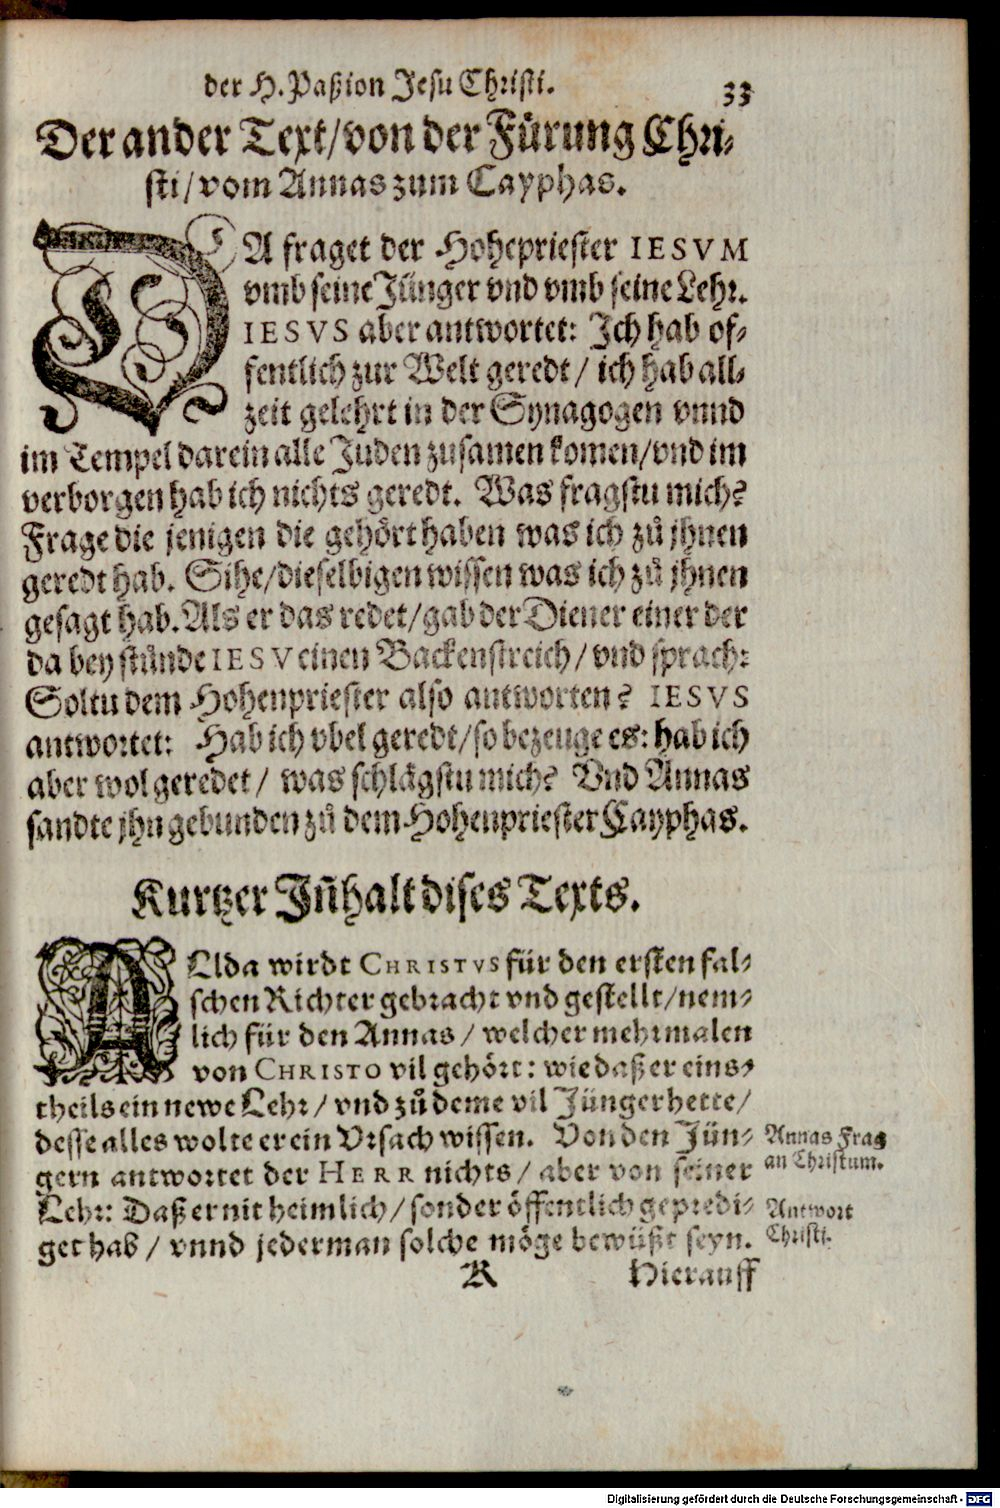 der H. Paßion Jesu Christi. 33
Der ander Text/von der Fürung Chri-
sti/vom Annas zum Cayphas.
DA fraget der Hohepriester IESVM
vmb seine Jünger vnd vmb seine Lehr.
IESVS aber antwortet: Ich hab of-
fentlich zur Welt geredt / ich hab all-
zeit gelehrt in der Synagogen vnnd
im Tempel darein alle Juden zusamen komen/vnd im
verborgen hab ich nichts geredt. Was fragstu mich?
Frage die jenigen die gehört haben was ich zů jhnen
geredt hab. Sihe/dieselbigen wissen was ich zů jhnen
gesagt hab. Als er das redet/gab der Diener einer der
da bey stůnde IESV einen Backenstreich/vnd sprach:
Soltu dem Hohenpriester also antworten? IESVS
antwortet: Hab ich vbel geredt/so bezeuge es: hab ich
aber wol geredet / was schlägstu mich? Vnd Annas
sandte jhn gebunden zů dem Hohenpriester Cayphas.
Kurtzer Jñhalt dises Texts.
ALlda wirdt CHRISTVS für den ersten fal-
schen Richter gebracht vnd gestellt/nem-
lich für den Annas / welcher mehrmalen
von CHRISTO vil gehört: wie daß er eins-
theils ein newe Lehr / vnd zů deme vil Jünger hette/
desse alles wolte er ein Vrsach wissen. Von den Jün-
gern antwortet der HERR nichts / aber von seiner
Lehr: Daß er nit heimlich / sonder öffentlich gepredi-
get hab / vnnd jederman solche möge bewüßt seyn.
Annas Frag
an Christum.
Antwort
Christi.
K Hierauff
Digitalisierung gefördert durch die Deutsche Forschungsgemeinschaft - DFG